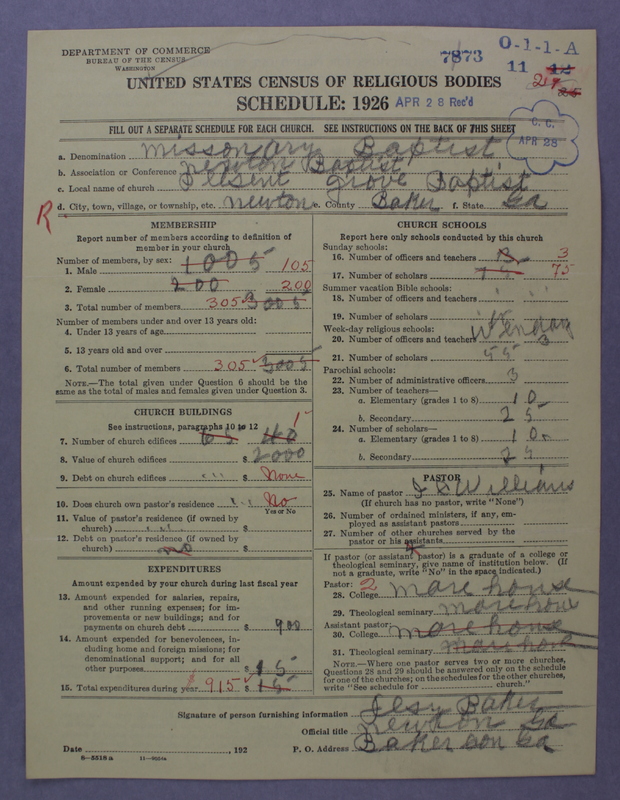 DEPARTMENT OF COMMERCE
BUREAU OF THE CENSUS
WASHINGTON
7873
O-1-1-A
11 12
UNITED STATES CENSUS OF RELIGIOUS BODIES
SCHEDULE: 1926 APR 28 Rec'd
C. C.
APR 28
FILL OUT A SEPARATE SCHEDULE FOR EACH CHURCH. SEE INSTRUCTIONS ON THE BACK OF THIS SHEET
a. Denomination missonary Baptist
b. Association or Conference newton Baptist
c. Local name of church Plesent grove Baptist
d. City, town, village, or township, etc. newton e. County Baker f. State Ga
R.
MEMBERSHIP
Report number of members according to definition of
member in your church
Number of members, by sex:
1. Male 1005 105
2. Female 200 200
3. Total number of members 305 3005
Number of members under and over 13 years old:
4. Under 13 years of age
5. 13 years old and over
6. Total number of members 305 3005
NOTE.—The total given under Question 6 should be the
same as the total of males and females given under Question 3.
CHURCH BUILDINGS
See instructions, paragraphs 10 to 12
7. Number of church edifices 65 40 1
8. Value of church edifices $ 2000
9. Debt on church edifices $ None
10. Does church own pastor's residence No
Yes or No
11. Value of pastor's residence (if owned by
church) $
12. Debt on pastor's residence (if owned by
church) no $
EXPENDITURES
Amount expended by your church during last fiscal year
13. Amount expended for salaries, repairs,
and other running expenses; for im-
provements or new buildings; and for
payments on church debt $ 900
14. Amount expended for benevolences, in-
cluding home and foreign missions; for
denominational support; and for all
other purposes $ 15
15. Total expenditures during year $ 915 $ 15
CHURCH SCHOOLS
Report here only schools conducted by this church
Sunday schools:
16. Number of officers and teachers 3
17. Number of scholars 75 75
Summer vacation Bible schools:
18. Number of officers and teachers
19. Number of scholars
Week-day religious schools:
20. Number of officers and teachers 3
21. Number of scholars 55
Parochial schools:
22. Number of administrative officers 3
23. Number of teachers—
a. Elementary (grades 1 to 8) 10
b. Secondary 25
24. Number of scholars—
a. Elementary (grades 1 to 8) 10
b. Secondary 25
PASTOR
25. Name of pastor Williams
(If church has no pastor, write "None")
26. Number of ordained ministers, if any, em-
ployed as assistant pastors
27. Number of other churches served by the
pastor or his assistants 4
If pastor (or assistant pastor) is a graduate of a college or
theological seminary, give name of institution below. (If
not a graduate, write "No" in the space indicated.)
Pastor: 2
28. College more house
29. Theological seminary more hous
Assistant pastor:
30. College more house
31. Theological seminary more hous
NOTE.—Where one pastor serves two or more churches,
Questions 28 and 29 should be answered only on the schedule
for one of the churches; on the schedules for the other churches,
write "See schedule for church."
Signature of person furnishing information Baker
Official title newton Ga
Date , 192 P. O. Address Baker con Ga
8—5518a 11—9554a